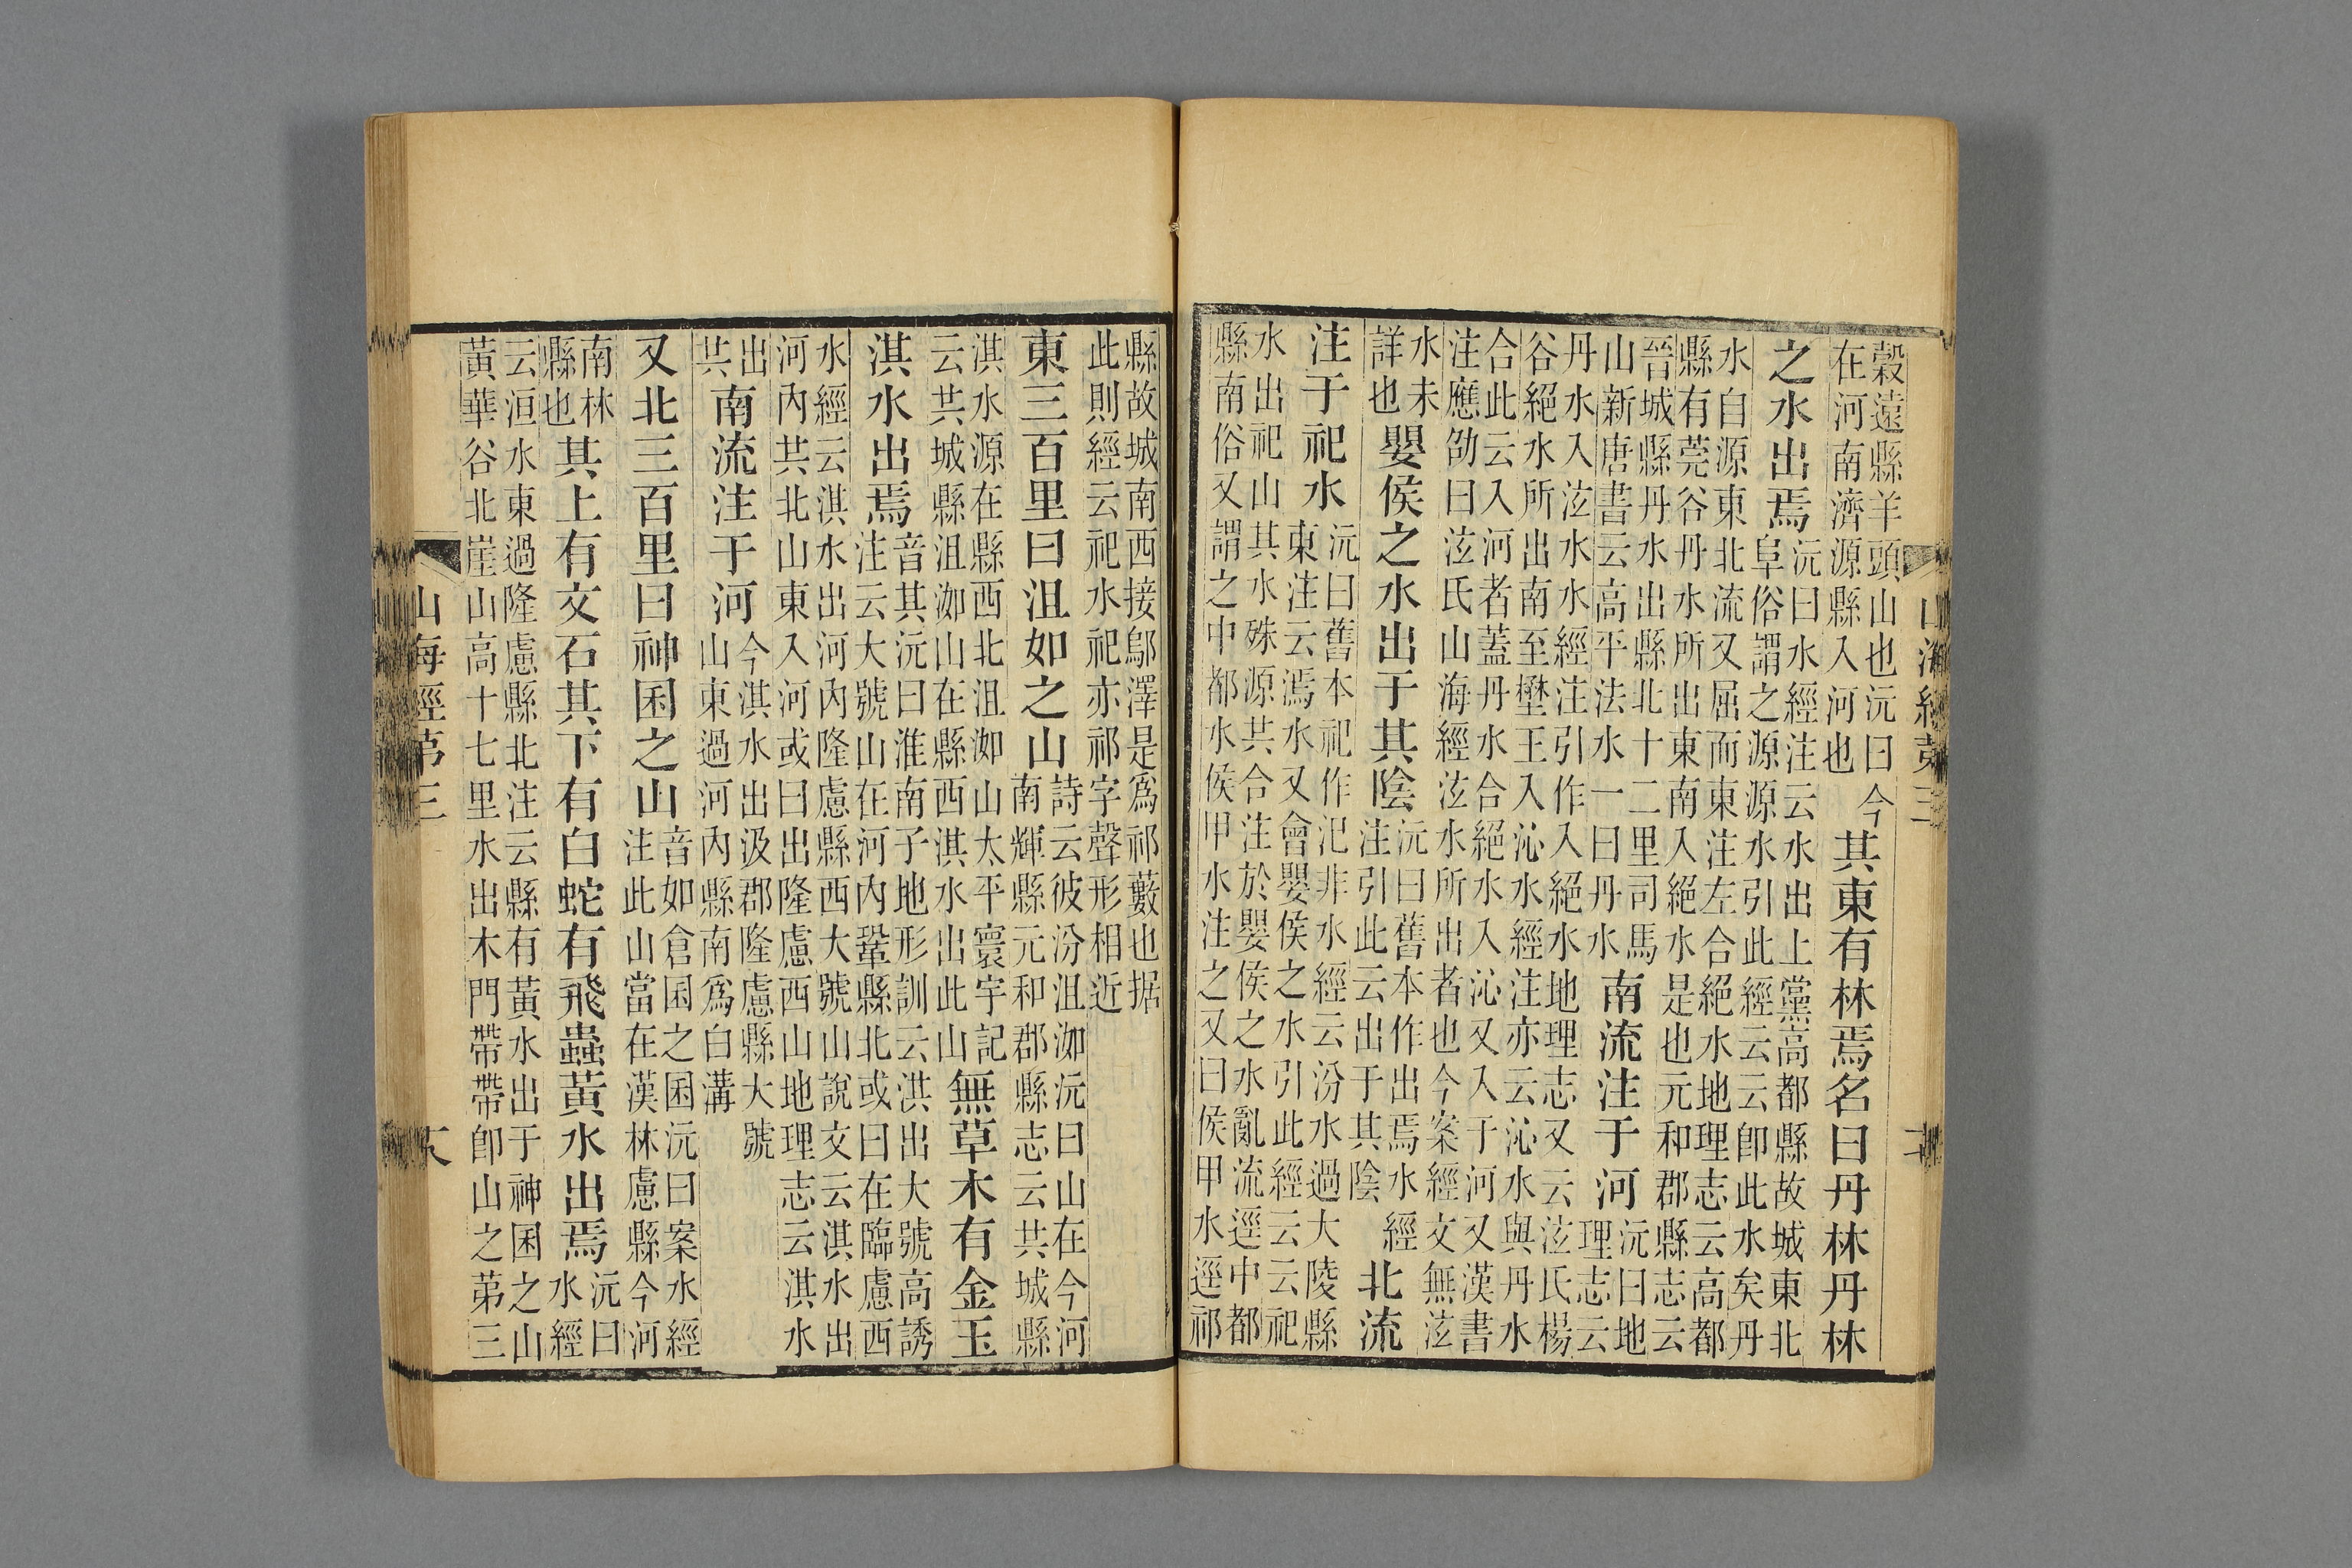 山海經第三
穀遠縣羊頭山也沅曰今
在河南濟源縣入河也
其東有林焉名曰丹林丹林
之水出焉
沅曰水經注云水出上黨高都縣故城東北
阜俗謂之源源水引此經云云卽此水矣丹
水自源東北流又屈而東注左合絕水地理志云高都
縣有莞谷丹水所出東南入絕水是也元和郡縣志云
晉城縣丹水出縣北十二里司馬
山新唐書云高平法水一曰丹水
南流注于河
沅曰地
理志云
丹水入泫水水經注引作入絕水地理志又云泫氏楊
谷絕水所出南至壄王入沁水經注亦云沁水與丹水
合此云入河者蓋丹水合絕水入沁又入于河又漢書
注應劭曰泫氏山海經泫水所出者也今案經文無泫
水未
詳也
嬰侯之水出于其陰
沅曰舊本作出焉水經
注引此云出于其陰
北流
注于祀水
沅曰舊本祀作汜非水經云汾水過大陵縣
東注云溤水又會嬰侯之水引此經云云祀
水出祀山其水硃源共合注於嬰侯之水亂流逕中都
縣南俗又謂之中都水侯甲水注之又曰侯甲水逕祁
縣故城南西接鄔澤是爲祁藪也据
此則經云祀水祀亦祁字聲形相近
東三百里曰沮如之山
詩云彼汾沮洳沅曰山在今河
南輝縣元和郡縣志云共城縣
淇水源在縣西北沮洳山太平寰宇記
云共城縣沮洳山在縣西淇水出此山
無草木有金玉
淇水出焉
音其沅曰淮南子地形訓云洪出大號高誘
注云大號山在河內鞏縣北或曰在臨慮西
水經云淇水出河內隆慮縣西大號山說文云淇水出
河內共北山東入河或曰出隆慮西山地理志云淇水
出
共
南流注于河
今淇水出汲郡隆慮縣大號
山東過河內縣南爲白溝
又北三百里曰神囷之山
音如倉囷之囷沅曰案水經
注此山當在漢林慮縣今河
南林
縣也
其上有文石其下有白蛇有飛蟲黃水出焉
沅曰
水經
云洹水東過隆慮縣北注云縣有黃水出于神囷之山
黃華谷北崖山高十七里水出木門帶帶卽山之弟三
山海經第三